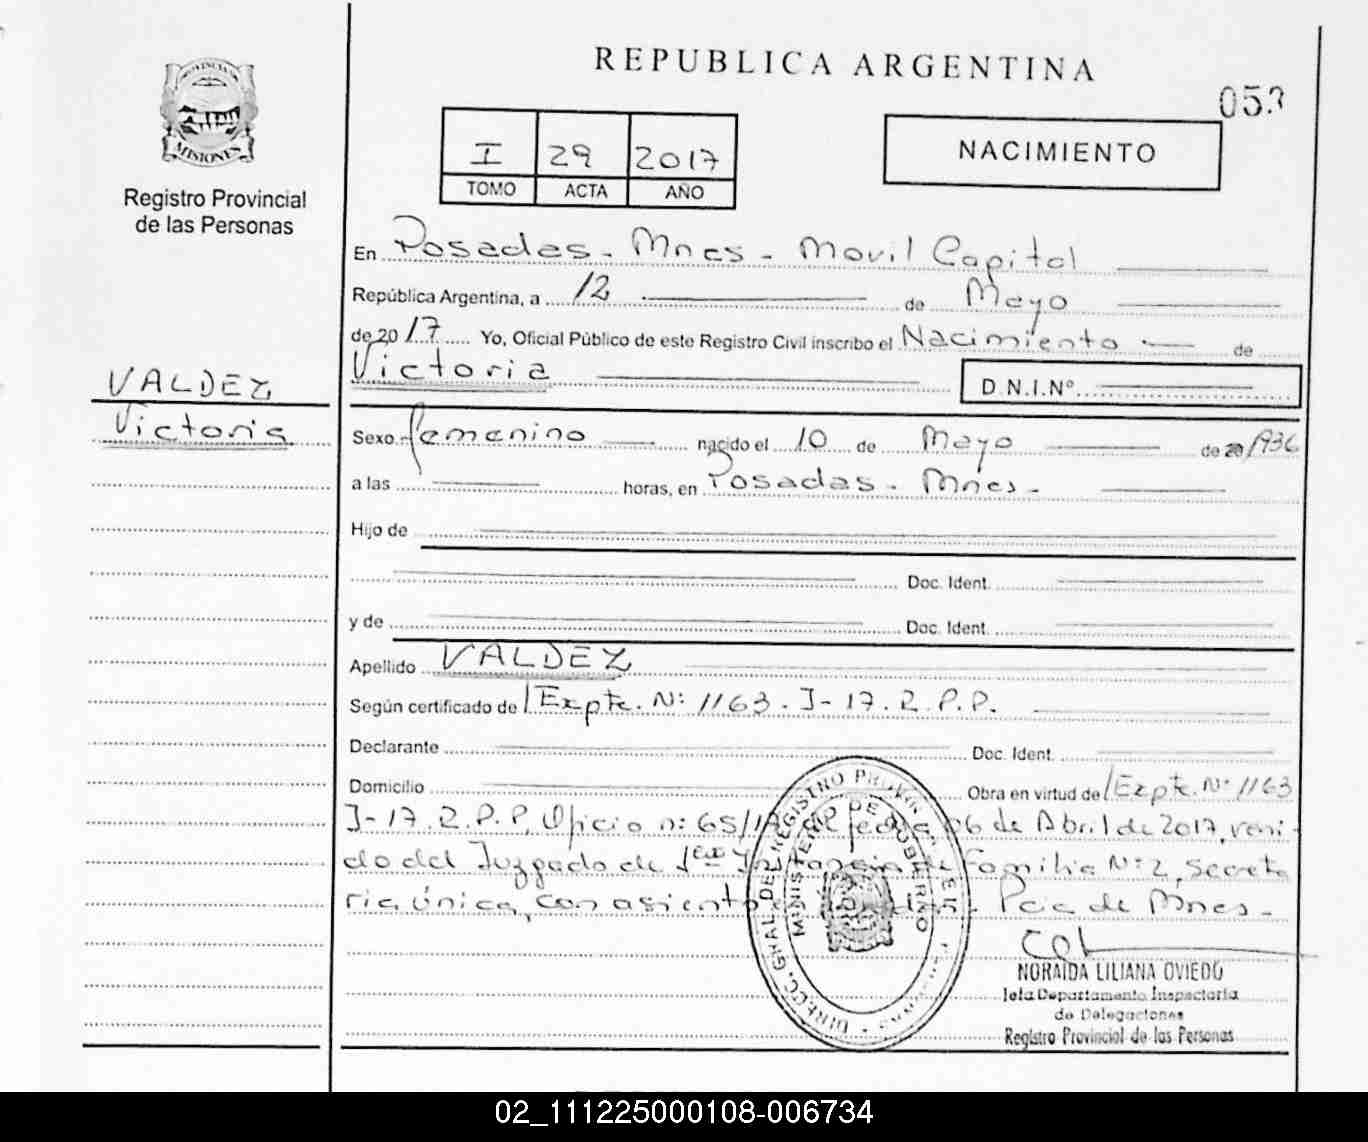 REPUBLICA ARGENTINA
053
PROVINCIA DE
MISIONES
Registro Provincial
de las Personas
I 29 2017
TOMO ACTA AÑO
NACIMIENTO
En Posadas - Mnes - Movil Capital
República Argentina, a 12 de Mayo
de 2017 Yo, Oficial Público de este Registro Civil inscribo el Nacimiento de
Victoria D.N.I.Nº
VALDEZ
Victoria
Sexo femenino nacido el 10 de Mayo de 20 1936
a las horas, en Posadas - Mnes -
Hijo de
Doc. Ident.
y de Doc. Ident.
Apellido VALDEZ
Según certificado de Expte. Nº 1163 - J - 17. R. P. P.
Declarante Doc. Ident.
Domicilio Obra en virtud de Expte. Nº 1163
J - 17. R. P. P. Oficio nº 65/17 de fecha 06 de Abril de 2017, veni-
do del Juzgado de 1era Instancia de Familia Nº 2, Secreta
ria única, con asiento en Posadas - Pcia de Mnes -
DIRECC. GRAL. DEL REGISTRO PROVINCIAL DE LAS PERSONAS
MINISTERIO DE GOBIERNO
NORAIDA LILIANA OVIEDO
Jefa Departamento Inspectoria
de Delegaciones
Registro Provincial de las Personas
02_111225000108-006734